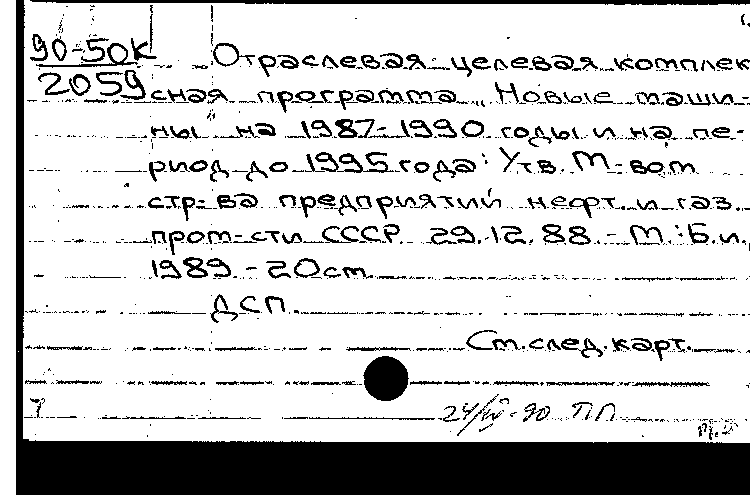 90-50К
2059
Отраслевая целевая комплек
сная программа „Новые маши-
ны на 1987-1990 годы и на пе-
риод до 1995 года: Утв. М-вом
стр-ва предприятий нефт. и газ.
пром-сти СССР 29.12.88.-М.:Б.и.,
1989 - 20см
ДСП.
См.след.карт.
90 ПП